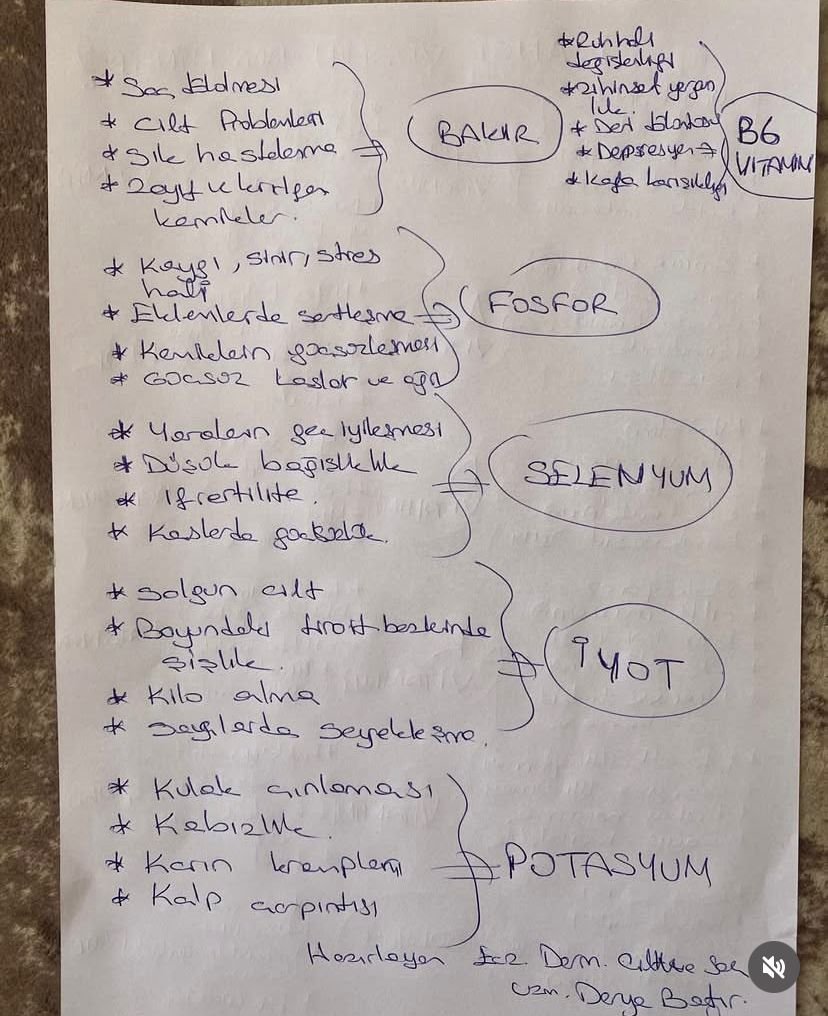 * Saç dökülmesi
* Cilt Problemleri
* Sık hastalanma
* Zayıf ve kırılgan
kemikler.
BAKIR
* Ruh hali
değişikliği
* zihinsel yorgun
luk.
* Deri
* Depresyon
* Kafa karışıklığı
B6
VITAMIN
* Kaygı, sinir, stres
hali
* Eklemlerde sertleşme
* Kemiklerin güçsüzleşmesi
* Güçsüz kaslar ve ağrı
FOSFOR
* Yaraların geç iyileşmesi
* Düşük bağışıklık
* Ifrertilite.
* Kaslarda güçsüzlük.
SELENYUM
* Solgun cilt
* Boyundaki tiroit bezlerinde
şişlik.
* Kilo alma
* Saçlarda seyrekleşme.
İYOT
* Kulak çınlaması
* Kabızlık.
* Karın krampları
* Kalp çarpıntısı
POTASYUM
Hazırlayan Ecz. Derm. Cilt ve Saç
Uzm. Derya